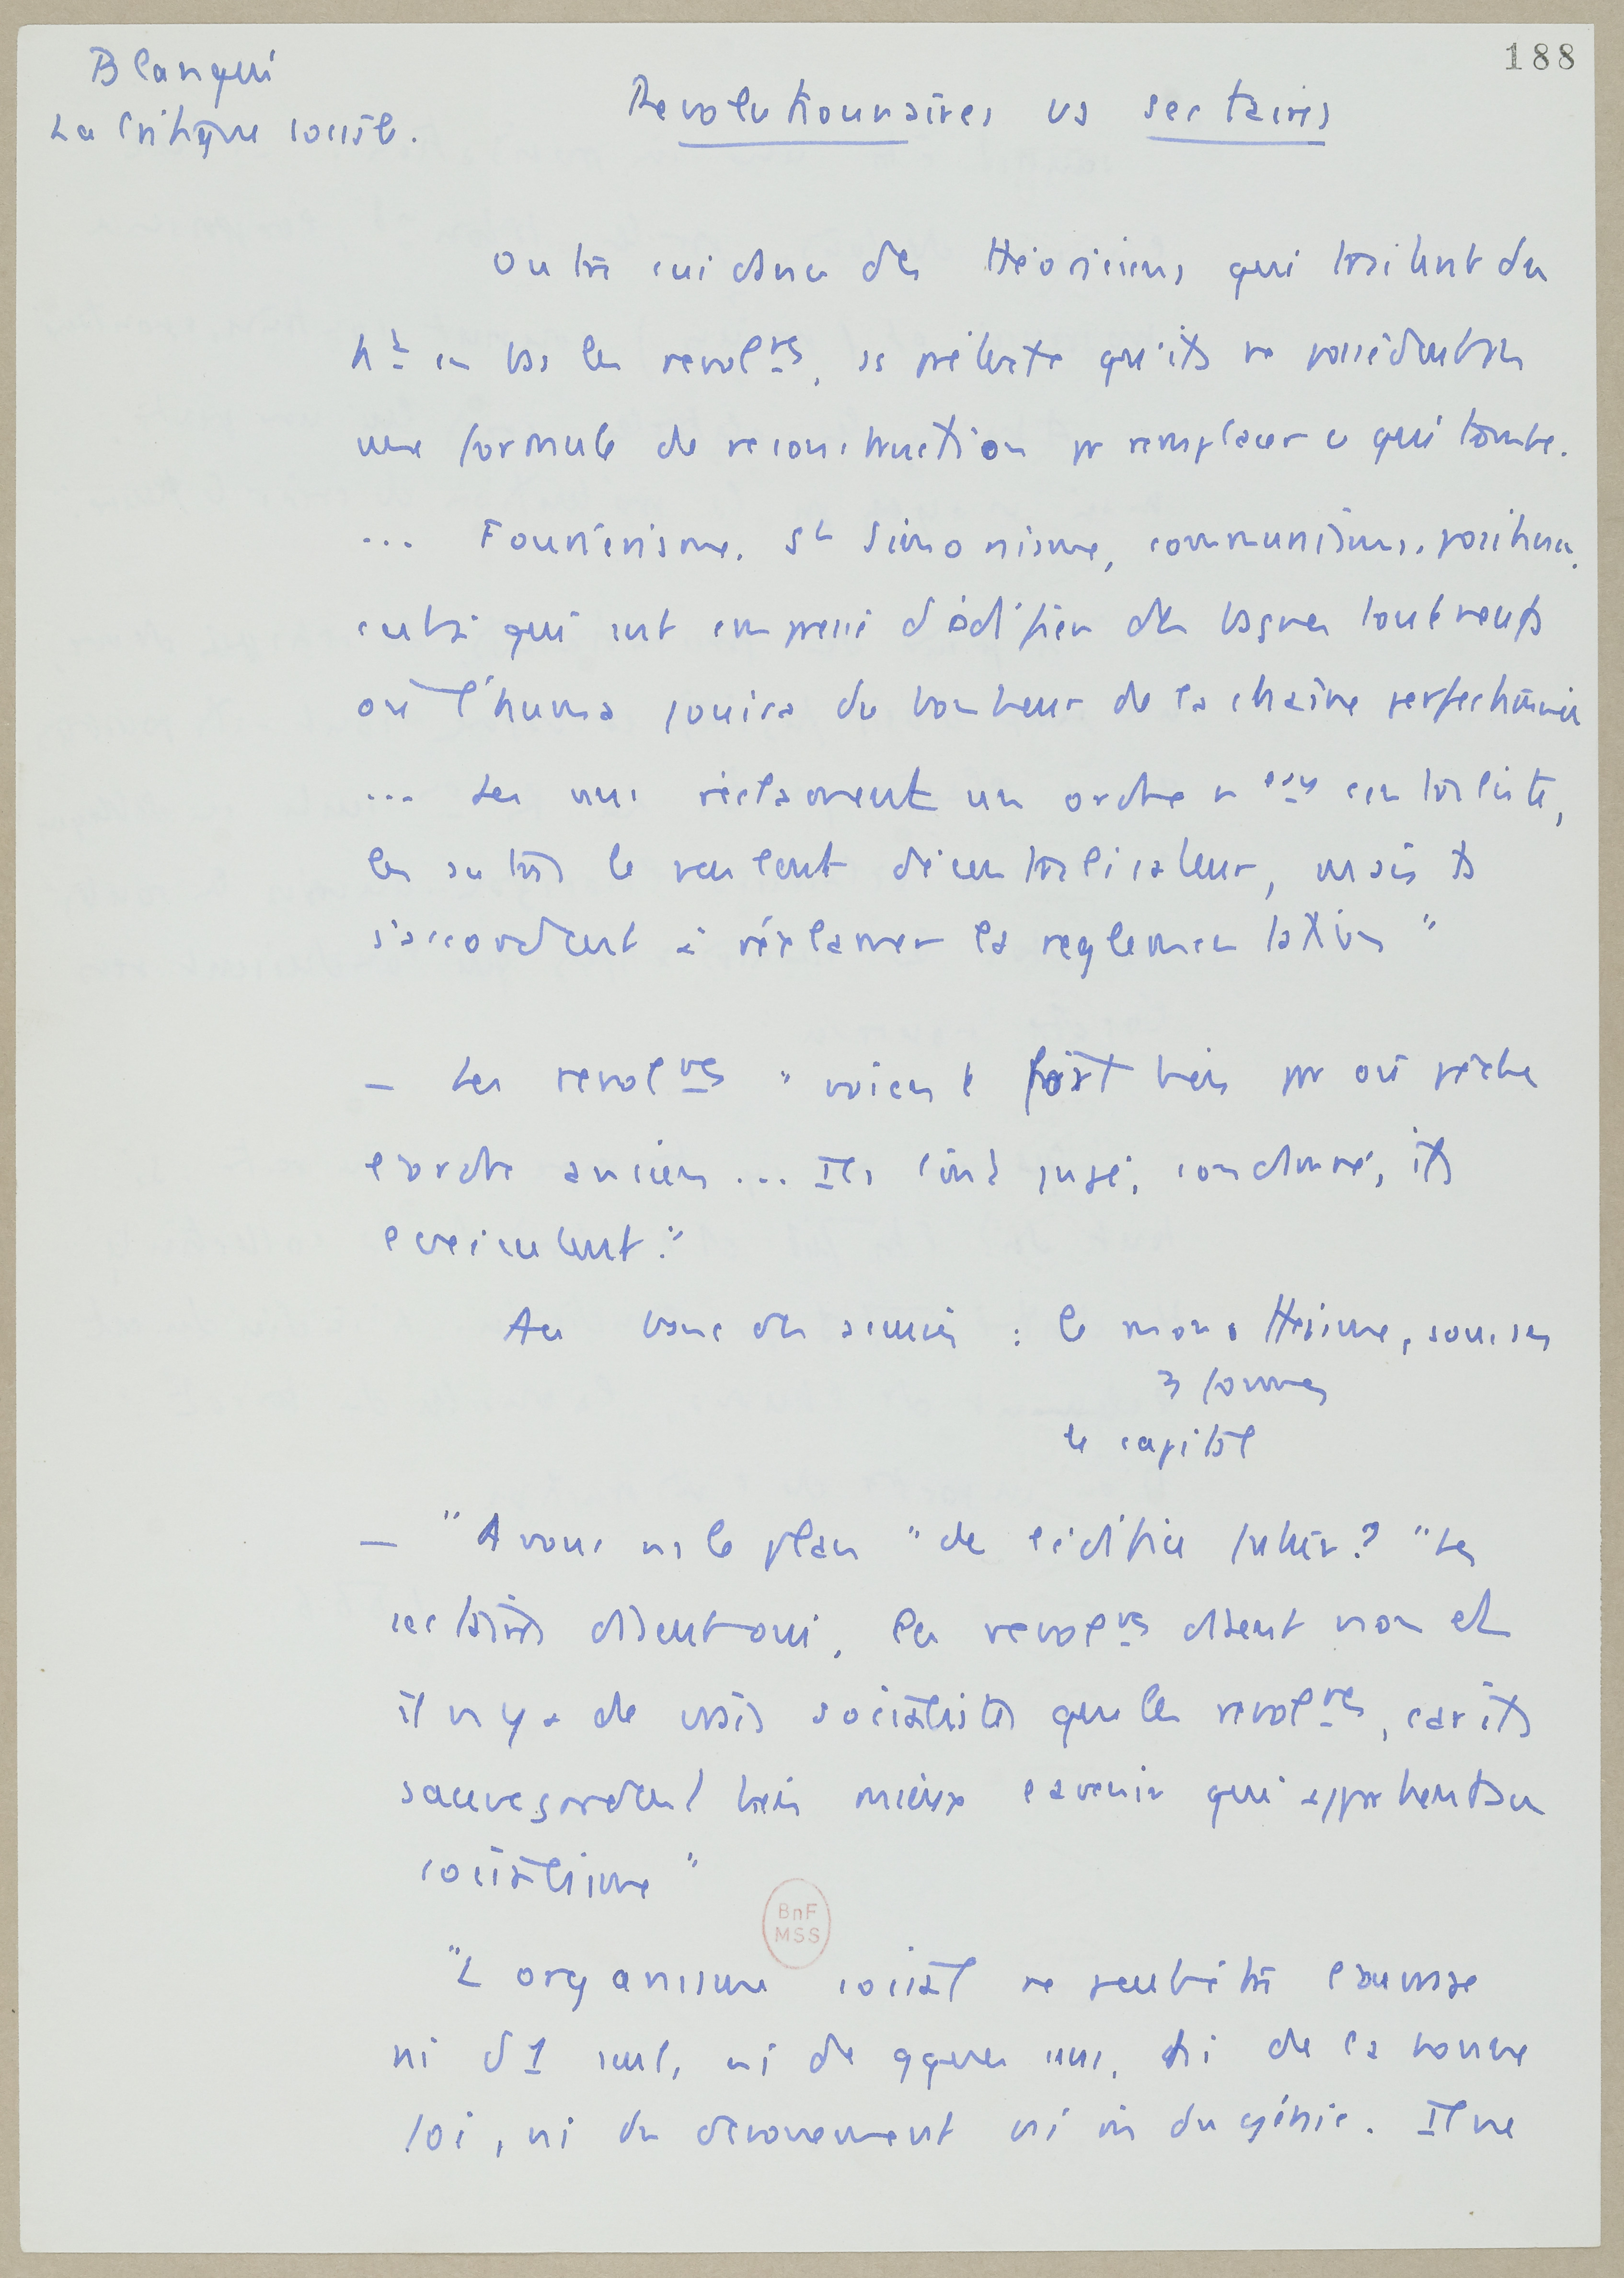 188
Blanqui
La Critique sociale.
Revolutionnaires vs sectaires
Outrecuidance des théoriciens qui traitent du
ht en bas les revolres, ss prétexte qu'ils ne possèdent pas
une formule de reconstruction pr remplacer ce qui tombe.
... Fouriérisme. St Simonisme, communisme, positivisme,
c'est à qui sera empressé d'édifier des bagnes tout neufs
où l'huma jouira du bonheur de la chaine perfectionnée
... Les uns réclament un ordre centraliste,
les autres le veulent décentralisateur, mais ils
s'accordent à réclamer la reglementation "
— Les revolres " voient fort bien par où pèche
l'ordre ancien ... Ils l'ont jugé, condamné, ils
l'exécutent."
Au banc des accusés : le monothéisme, sous ses
3 formes
le capital
— "Avous ns le plan " de l'édifice futur ? "Les
sectaires disent oui, les revolres disent non et
il n'y a de vrais socialistes que les revolres, car ils
sauvegardent bien mieux l'avenir qui appartient au
socialisme "
BnF
MSS
"L'organisme social ne peut être l'ouvrage
ni d'1 seul, ni de qques uns, ni de la bonne
foi, ni du dévouement ni du génie. Il ne